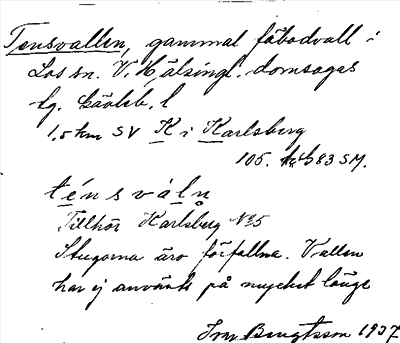 Tensvallen, gammal fäbodvall i
Los sn. V. Hälsingl. domsagas
tg. Gävleb. l
1,5 km SV K i Karlsberg
105. 83 SM.
téns váln
Tillhör Karlsberg No 5
Stugorna äro förfallna. Vallen
har ej använts på mycket länge
Bengtsson 1937